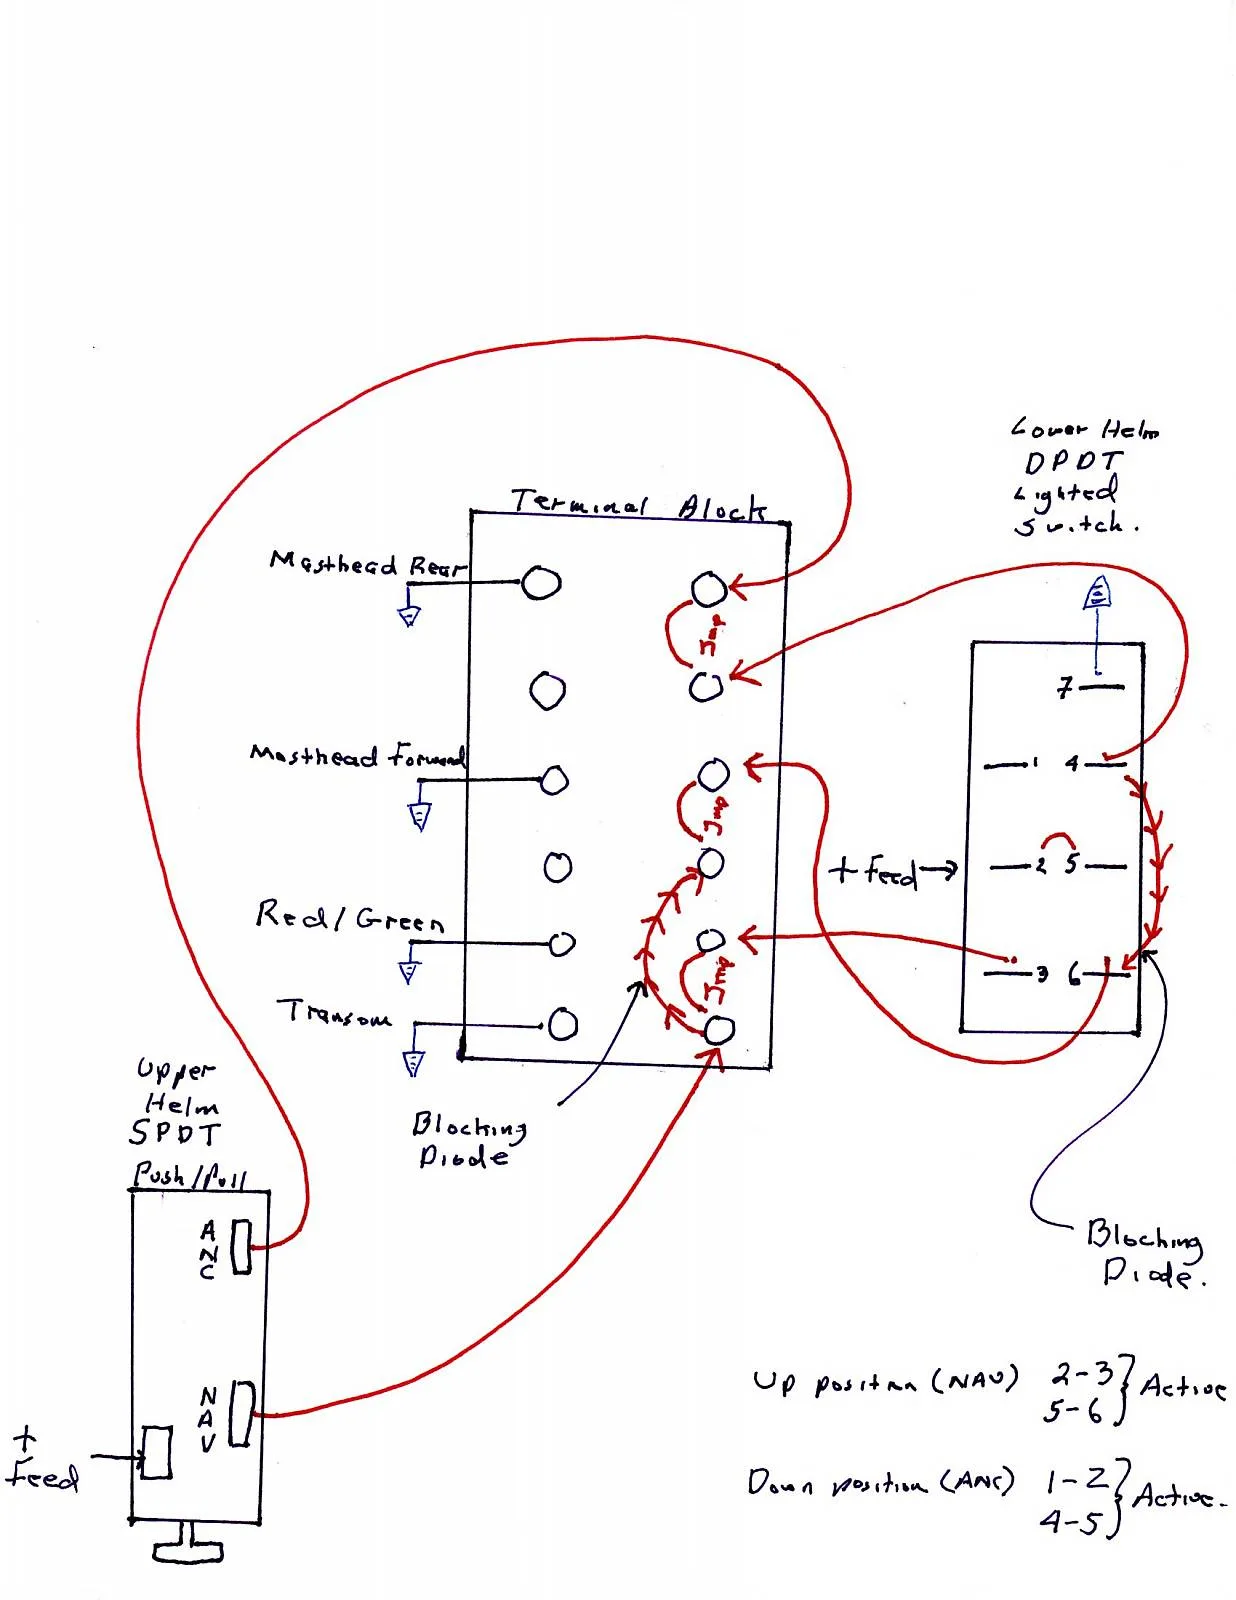 Lower Helm
DPDT
Lighted
Switch.
Terminal Block
Masthead Rear
Jmp
7
Masthead Forward
1 4
Jmp
+ Feed
2 5
Red/Green
Jmp
3 6
Transom
Upper
Helm
SPDT
Push/Pull
Blocking
Diode
ANC
NAV
+
Feed
Blocking
Diode.
Up position (NAV) 2-3
5-6
Active
Down position (ANC) 1-2
4-5
Active.